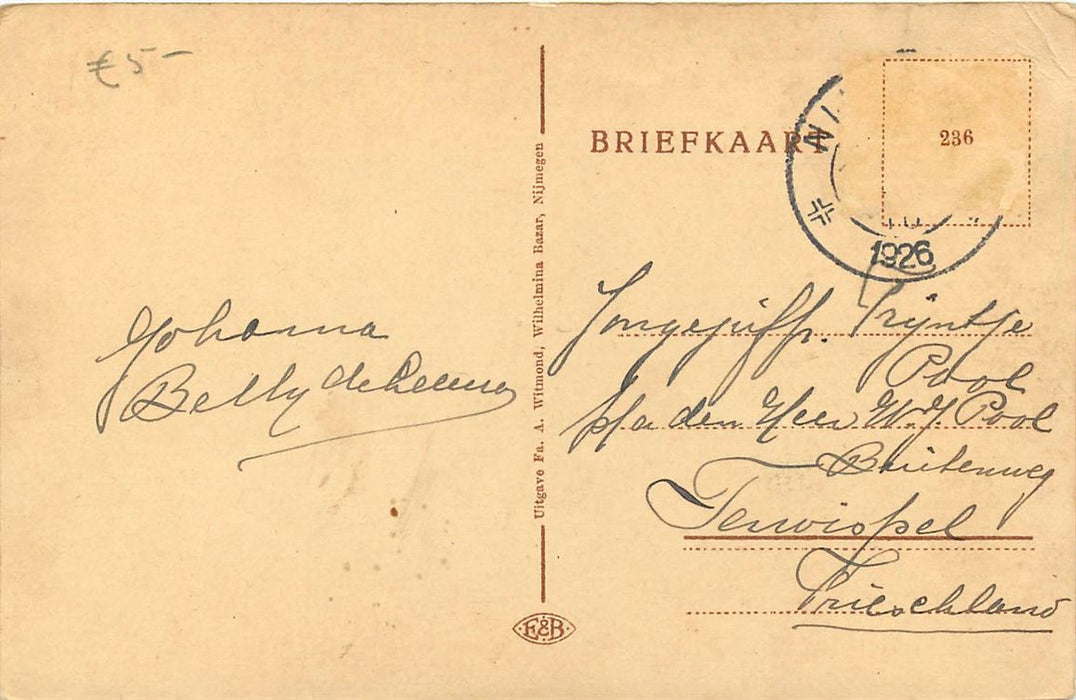 €5-
BRIEFKAART
236
NI
1926
Johanna
Belly de Leeuw
Uitgave Fa. A. Witmond, Wilhelmina Bazar, Nijmegen
Jongejuffr. Trijntje
Pool
p/a den Heer W.J. Pool
Buitenweg
Terwispel
Frieschland
E&B